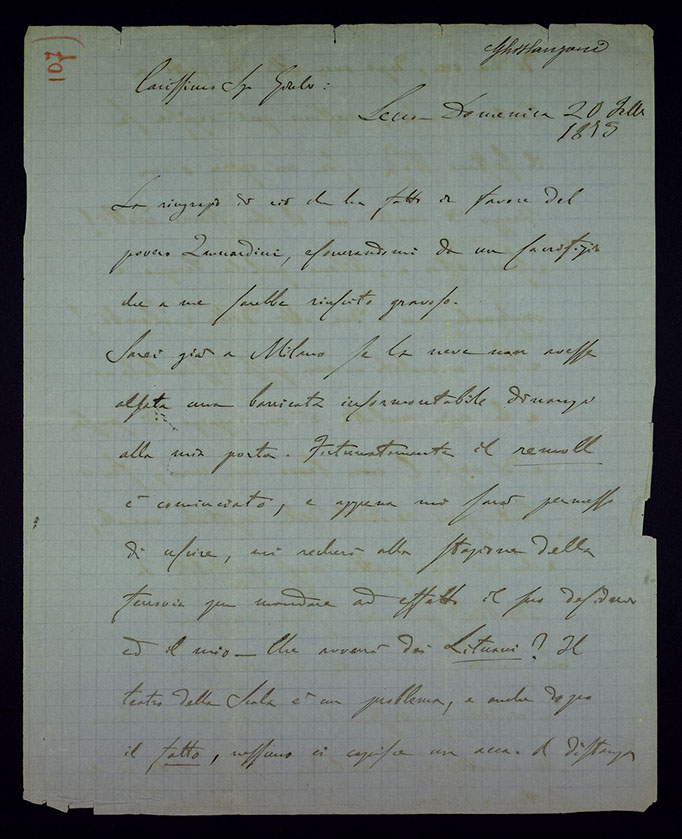 107
Ghislanzoni
Carissimo Sig Giulio:
Lecco Domenica 20 Febb
1875
La ringrazio di ciò che ha fatto in favore del
povero Zanardini, esonerandomi da un sacrifizio
che a me sarebbe riuscito gravoso.
Sarei già a Milano se la neve non avesse
alzata una barricata insormontabile dinanzi
alla mia porta. Fortunatamente il remoll
è cominciato, e appena mi sarà permesso
di uscire, mi recherò alla stazione della
ferrovia per mandare ad effetto il suo desiderio
ed il mio — Che avverrà dei Lituani? Il
teatro della Scala è un problema, e anche dopo
il fatto, nessuno ci capisce un acca. A distanza